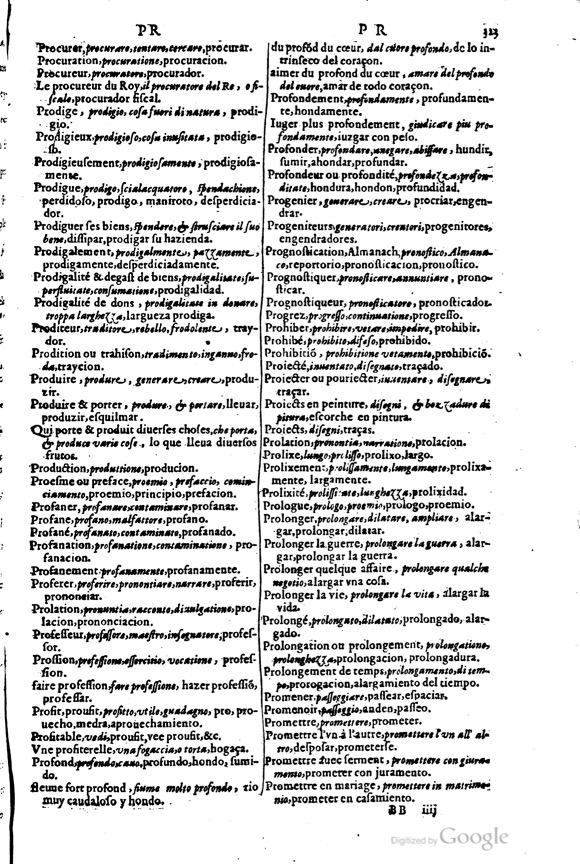 PR
P R
323
Procurer, procurare, tentare, cercare, procurar.
Procuration, procuratione, procuracion.
Procureur, procuratore, procurador.
Le procureur du Roy, il procuratore del Re, o fi-
scale, procurador fiscal.
Prodige, prodigio, cosa fuori di natura, prodi-
gio.
Prodigieux, prodigioso, cosa inusitata, prodigio-
so.
Prodigieusement, prodigiosamente, prodigiosa-
mente.
Prodigue, prodigo, scialacquatore, spendachione,
perdidoso, prodigo, maniroto, desperdicia-
dor.
Prodiguer ses biens, spendere, & strusciare il suo
bene, dissipar, prodigar su hazienda.
Prodigalement, prodigalmente, pazzamente,
prodigamente, desperdiciadamente.
Prodigalité & degast de biens, prodigalitate, su-
perfluitate, consumatione, prodigalidad.
Prodigalité de dons, prodigalitate in donare,
troppa larghezza, largueza prodiga.
Proditeur, traditore, rebello, frodolente, tray-
dor.
Prodition ou trahison, tradimento, inganno, fro-
da, traycion.
Produire, produre, generare, creare, produ-
zir.
Produire & porter, produre, & portare, lleuar,
produzir, esquilmar.
Qui porte & produit diuerses choses, che porta,
& produce varie cose, lo que lleua diuersos
frutos.
Production, produttione, producion.
Proesme ou preface, proemio, prefaccio, comin-
ciamento, proemio, principio, prefacion.
Profaner, profanare, contaminare, profanar.
Profane, profano, malfattore, profano.
Profané, profanato, contaminato, profanado.
Profanation, profanatione, contaminatione, pro-
fanacion.
Profanement, profanamente, profanamente.
Proferer, proferire, prononciare, narrare, proferir,
prononciar.
Prolation, pronuntia, racconto, diuulgatione, pro-
lacion, prononciacion.
Professeur, professore, maestro, insegnatore, profes-
sor.
Prossion, professione, essercitio, vocatione, profes-
sion.
faire profession, fare professione, hazer professió,
professar.
Profit, proufit, profitto, vtile, guadagno, pro, pro-
uecho, medra, aprouechamiento.
Profitable, vedi, proufit, vee proufit, &c.
Vne profiterelle, vna fogaccia, o torta, hogaça.
Profond, profondo, cauo, profundo, hondo, sumi-
do.
fleuue fort profond, fiume molto profondo, rio
muy caudaloso y hondo.
du profód du cœur, dal cuore profondo, de lo in-
trinseco del coraçon.
aimer du profond du cœur, amare del profondo
del cuore, amar de todo coraçon.
Profondement, profondamente, profundamen-
te, hondamente.
Iuger plus profondement, giudicare piu pro-
fondamente, iuzgar con peso.
Profonder, profondare, anegare, abissare, hundir,
sumir, ahondar, profundar.
Profondeur ou profondité, profondezza, profon-
ditate, hondura, hondon, profundidad.
Progenier, generare, creare, procriar, engen-
drar.
Progeniteurs, generatori, creatori, progenitores,
engendradores.
Prognostication, Almanach, pronostico, Almana-
co, reportorio, pronosticacion, pronostico.
Prognostiquer, pronosticare, annuntiare, prono-
sticar.
Prognostiqueur, pronosticatore, pronosticador.
Progrez, progresso, continuatione, progresso.
Prohiber, prohibire, vetare, impedire, prohibir.
Prohibé, prohibito, difeso, prohibido.
Prohibitió, prohibitione vetamento, prohibició.
Proiecté, inuentato, disegnato, traçado.
Proiecter ou pouriecter, inuentare, disegnare,
traçar.
Proiects en peinture, disegni, & bozzadure di
pitura, escorche en pintura.
Proiects, disegni, traças.
Prolation, pronontia, narratione, prolacion.
Prolixe, lungo, prolisso, prolixo, largo.
Prolixement, prolissamente, lungamente, prolixa-
mente, largamente.
Prolixité, prolissitate, lunghezza, prolixidad.
Prologue, prologo, proemio, prologo, proemio.
Prolonger, prolongare, dilatare, ampliare, alar-
gar, prolongar, dilatar.
Prolonger la guerre, prolongare la guerra, alar-
gar, prolongar la guerra.
Prolonger quelque affaire, prolongare qualche
negotio, alargar vna cosa.
Prolonger la vie, prolongare la vita, alargar la
vida.
Prolongé, prolongato, dilatato, prolongado, alar-
gado.
Prolongation ou prolongement, prolongatione,
prolonghezza, prolongacion, prolongadura.
Prolongement de temps, prolongamento, di tem-
po, prorogacion, alargamiento del tiempo.
Promener, passeggiare, passear, espaciar.
Promenoir, passeggio, anden, passeo.
Promettre, promettere, prometer.
Promettre l'vn à l'autre, promettere l'vn all' al-
tro, desposar, prometerse.
Promettre auec serment, promettere con giura-
mento, prometer con juramento.
Promettre en mariage, promettere in matrimo-
nio, prometer en casamiento.
BB iiij
Digitized by Google